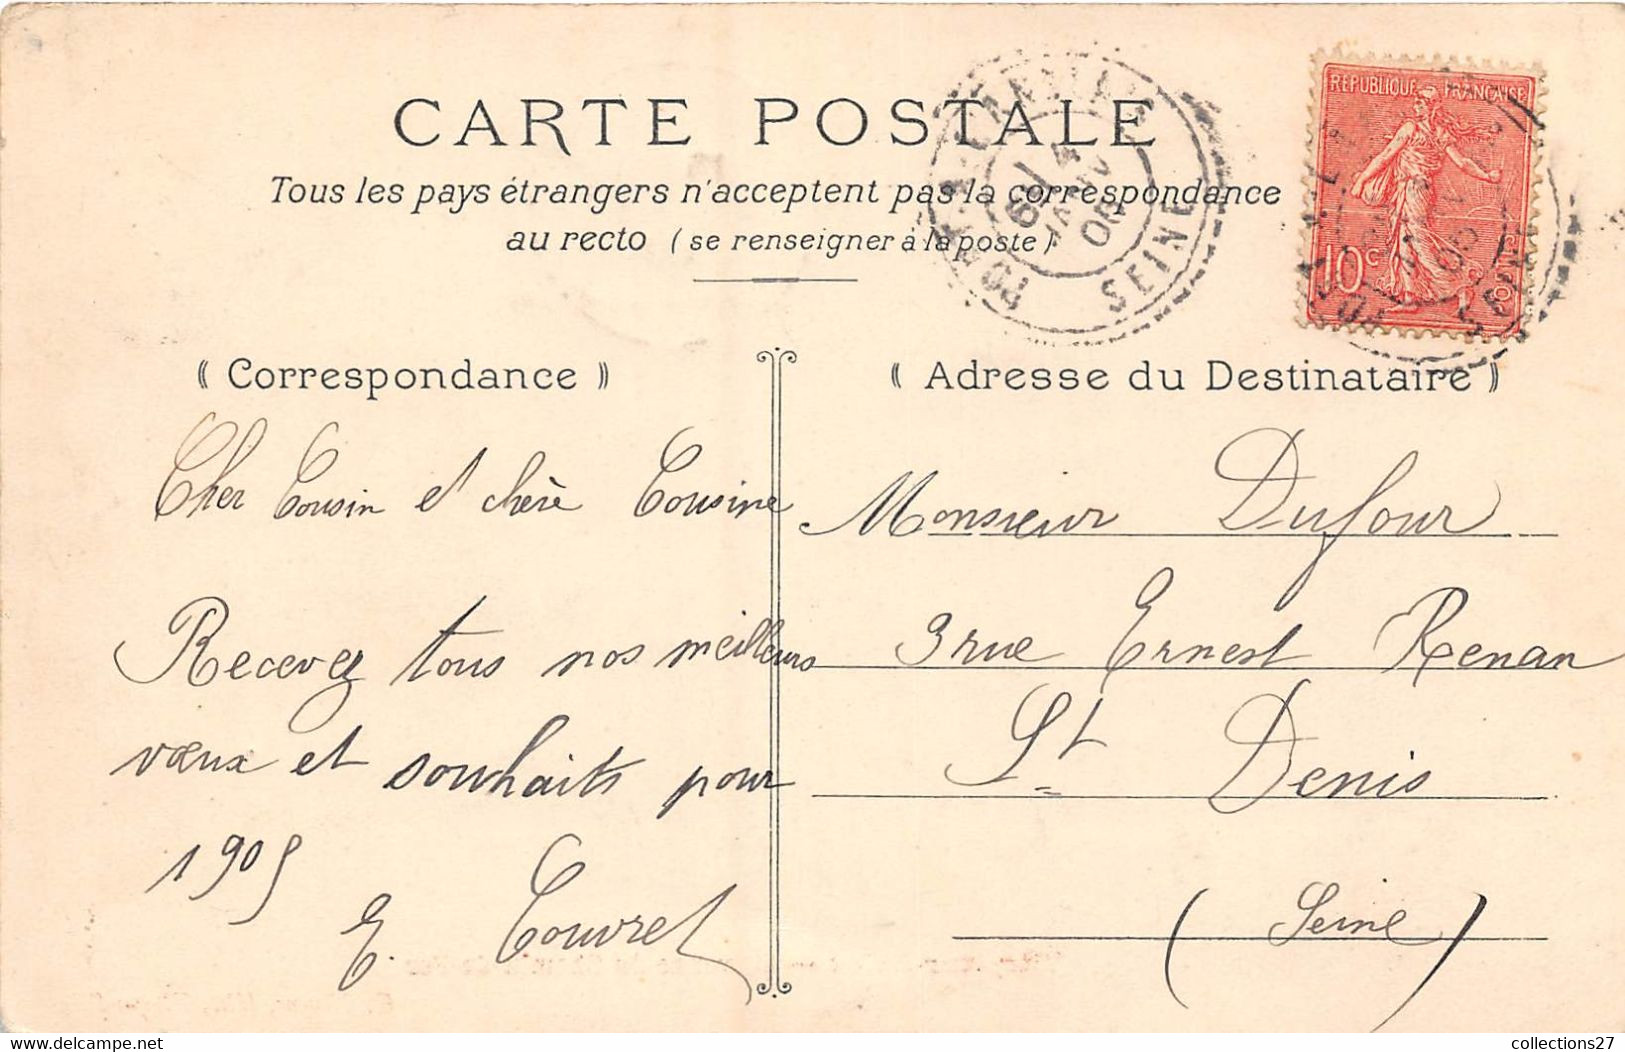 CARTE POSTALE
Tous les pays étrangers n'acceptent pas la correspondance
au recto (se renseigner à la poste)
RÉPUBLIQUE FRANÇAISE
10 c
SEINE
SEINE
⸨ Correspondance ⸩
Cher Cousin et chère Cousine
Recevez tous nos meilleurs
vœux et souhaits pour
1905
E. Couvret
⸨ Adresse du Destinataire ⸩
Monsieur Dufour
3 rue Ernest Renan
St Denis
(Seine)
collections27